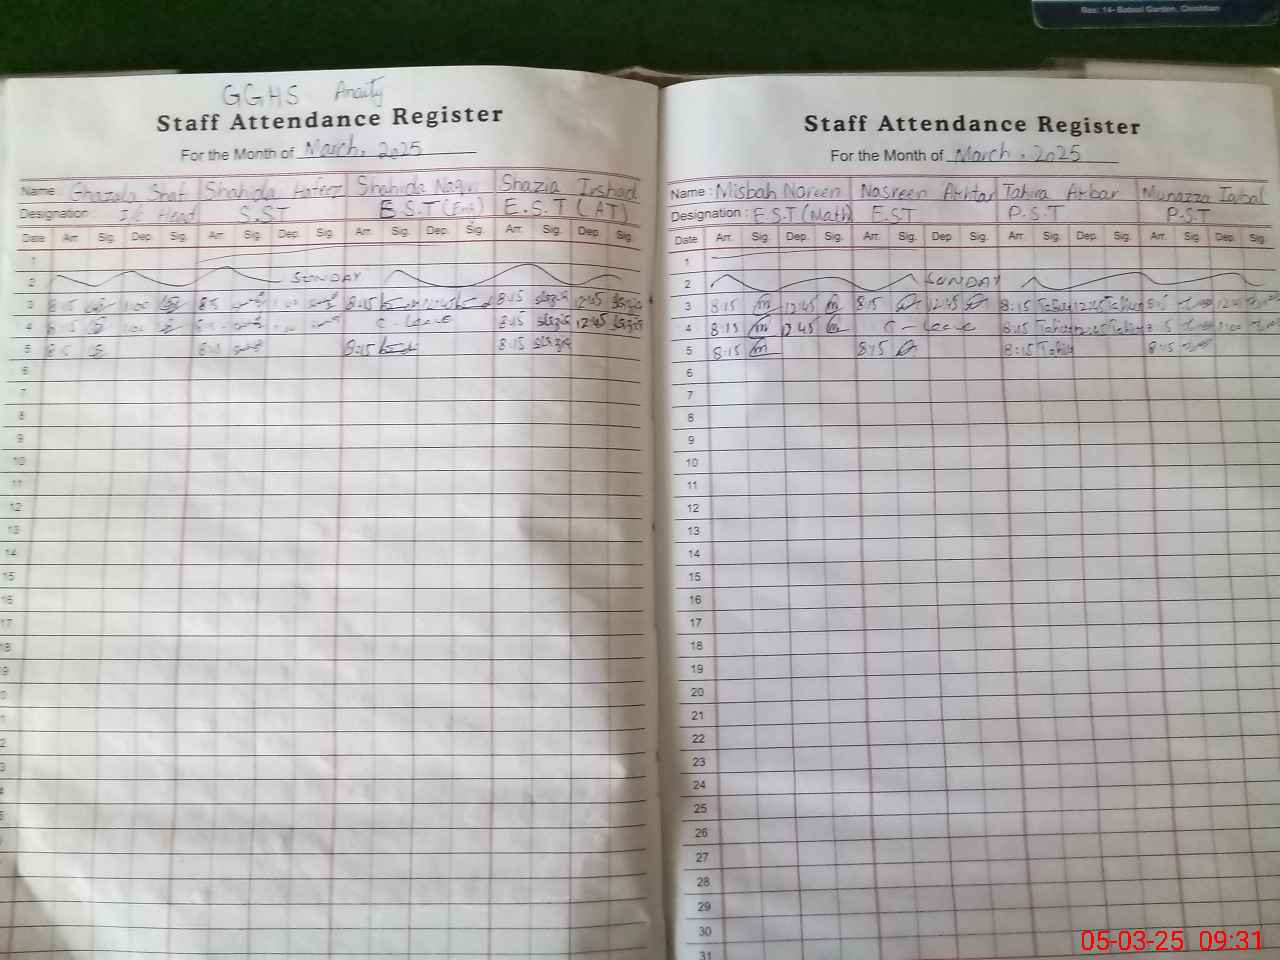 Res: 14- Batool Garden, Chishtian
GGHS
Staff Attendance Register
For the Month of March, 2025
Name Ghazala Shafi Shahida Hafeez Shahida Naqvi Shazia Irshad
Designation: I/C Head S.ST E.S.T (Eng) E.S.T (AT)
Date Arr. Sig. Dep. Sig. Arr. Sig. Dep. Sig. Arr. Sig. Dep. Sig. Arr. Sig. Dep. Sig.
1
2 SUNDAY
3 8:15 1:00 8:15 1:00 8:15 12:45 8:15 12:45
4 8:15 1:00 C-Leave 8:15 12:45
5 8:15 8:15 8:15 8:15
6
7
8
9
10
11
12
13
14
15
16
17
18
Staff Attendance Register
For the Month of March, 2025
Name: Misbah Noreen Nasreen Akhtar Tahira Akbar Munazza Iqbal
Designation: E.S.T (Math) E.ST P.S.T P.S.T
Date Arr. Sig. Dep. Sig. Arr. Sig. Dep Sig. Arr. Sig. Dep. Sig. Arr. Sig. Dep. Sig.
1
2 SUNDAY
3 8:15 m 12:45 m 8:15 12:45 8:15 12:45 8:15 12:45
4 8:15 m 12:45 m C-Leave 8:15 12:45 8:15 1:00
5 8:15 m 8:15 8:15 8:15
6
7
8
9
10
11
12
13
14
15
16
17
18
19
20
21
22
23
24
25
26
27
28
29
30
31
05-03-25 09:31